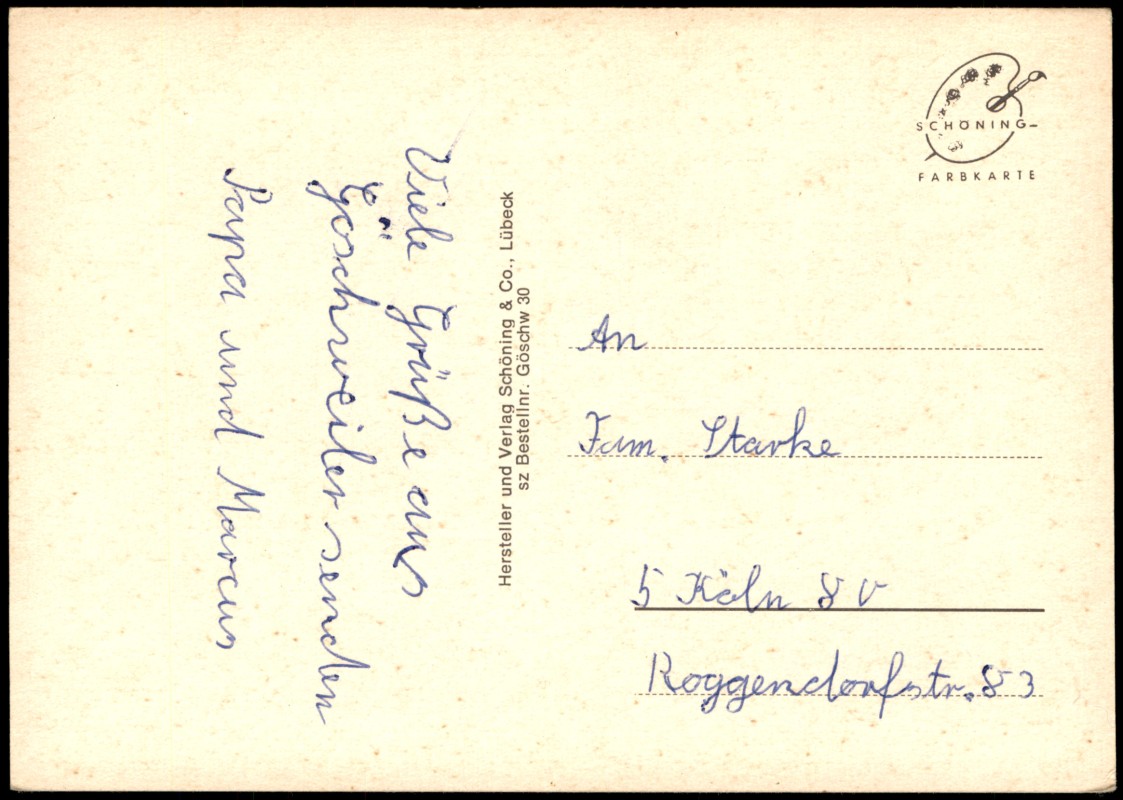 Viele Grüße aus
Göschweiler senden
Papa und Marcus
Hersteller und Verlag Schöning & Co., Lübeck
sz Bestellnr. Göschw 30
SCHÖNING-
FARBKARTE
An
Fam. Starke
5 Köln 80
Roggendorfstr. 83